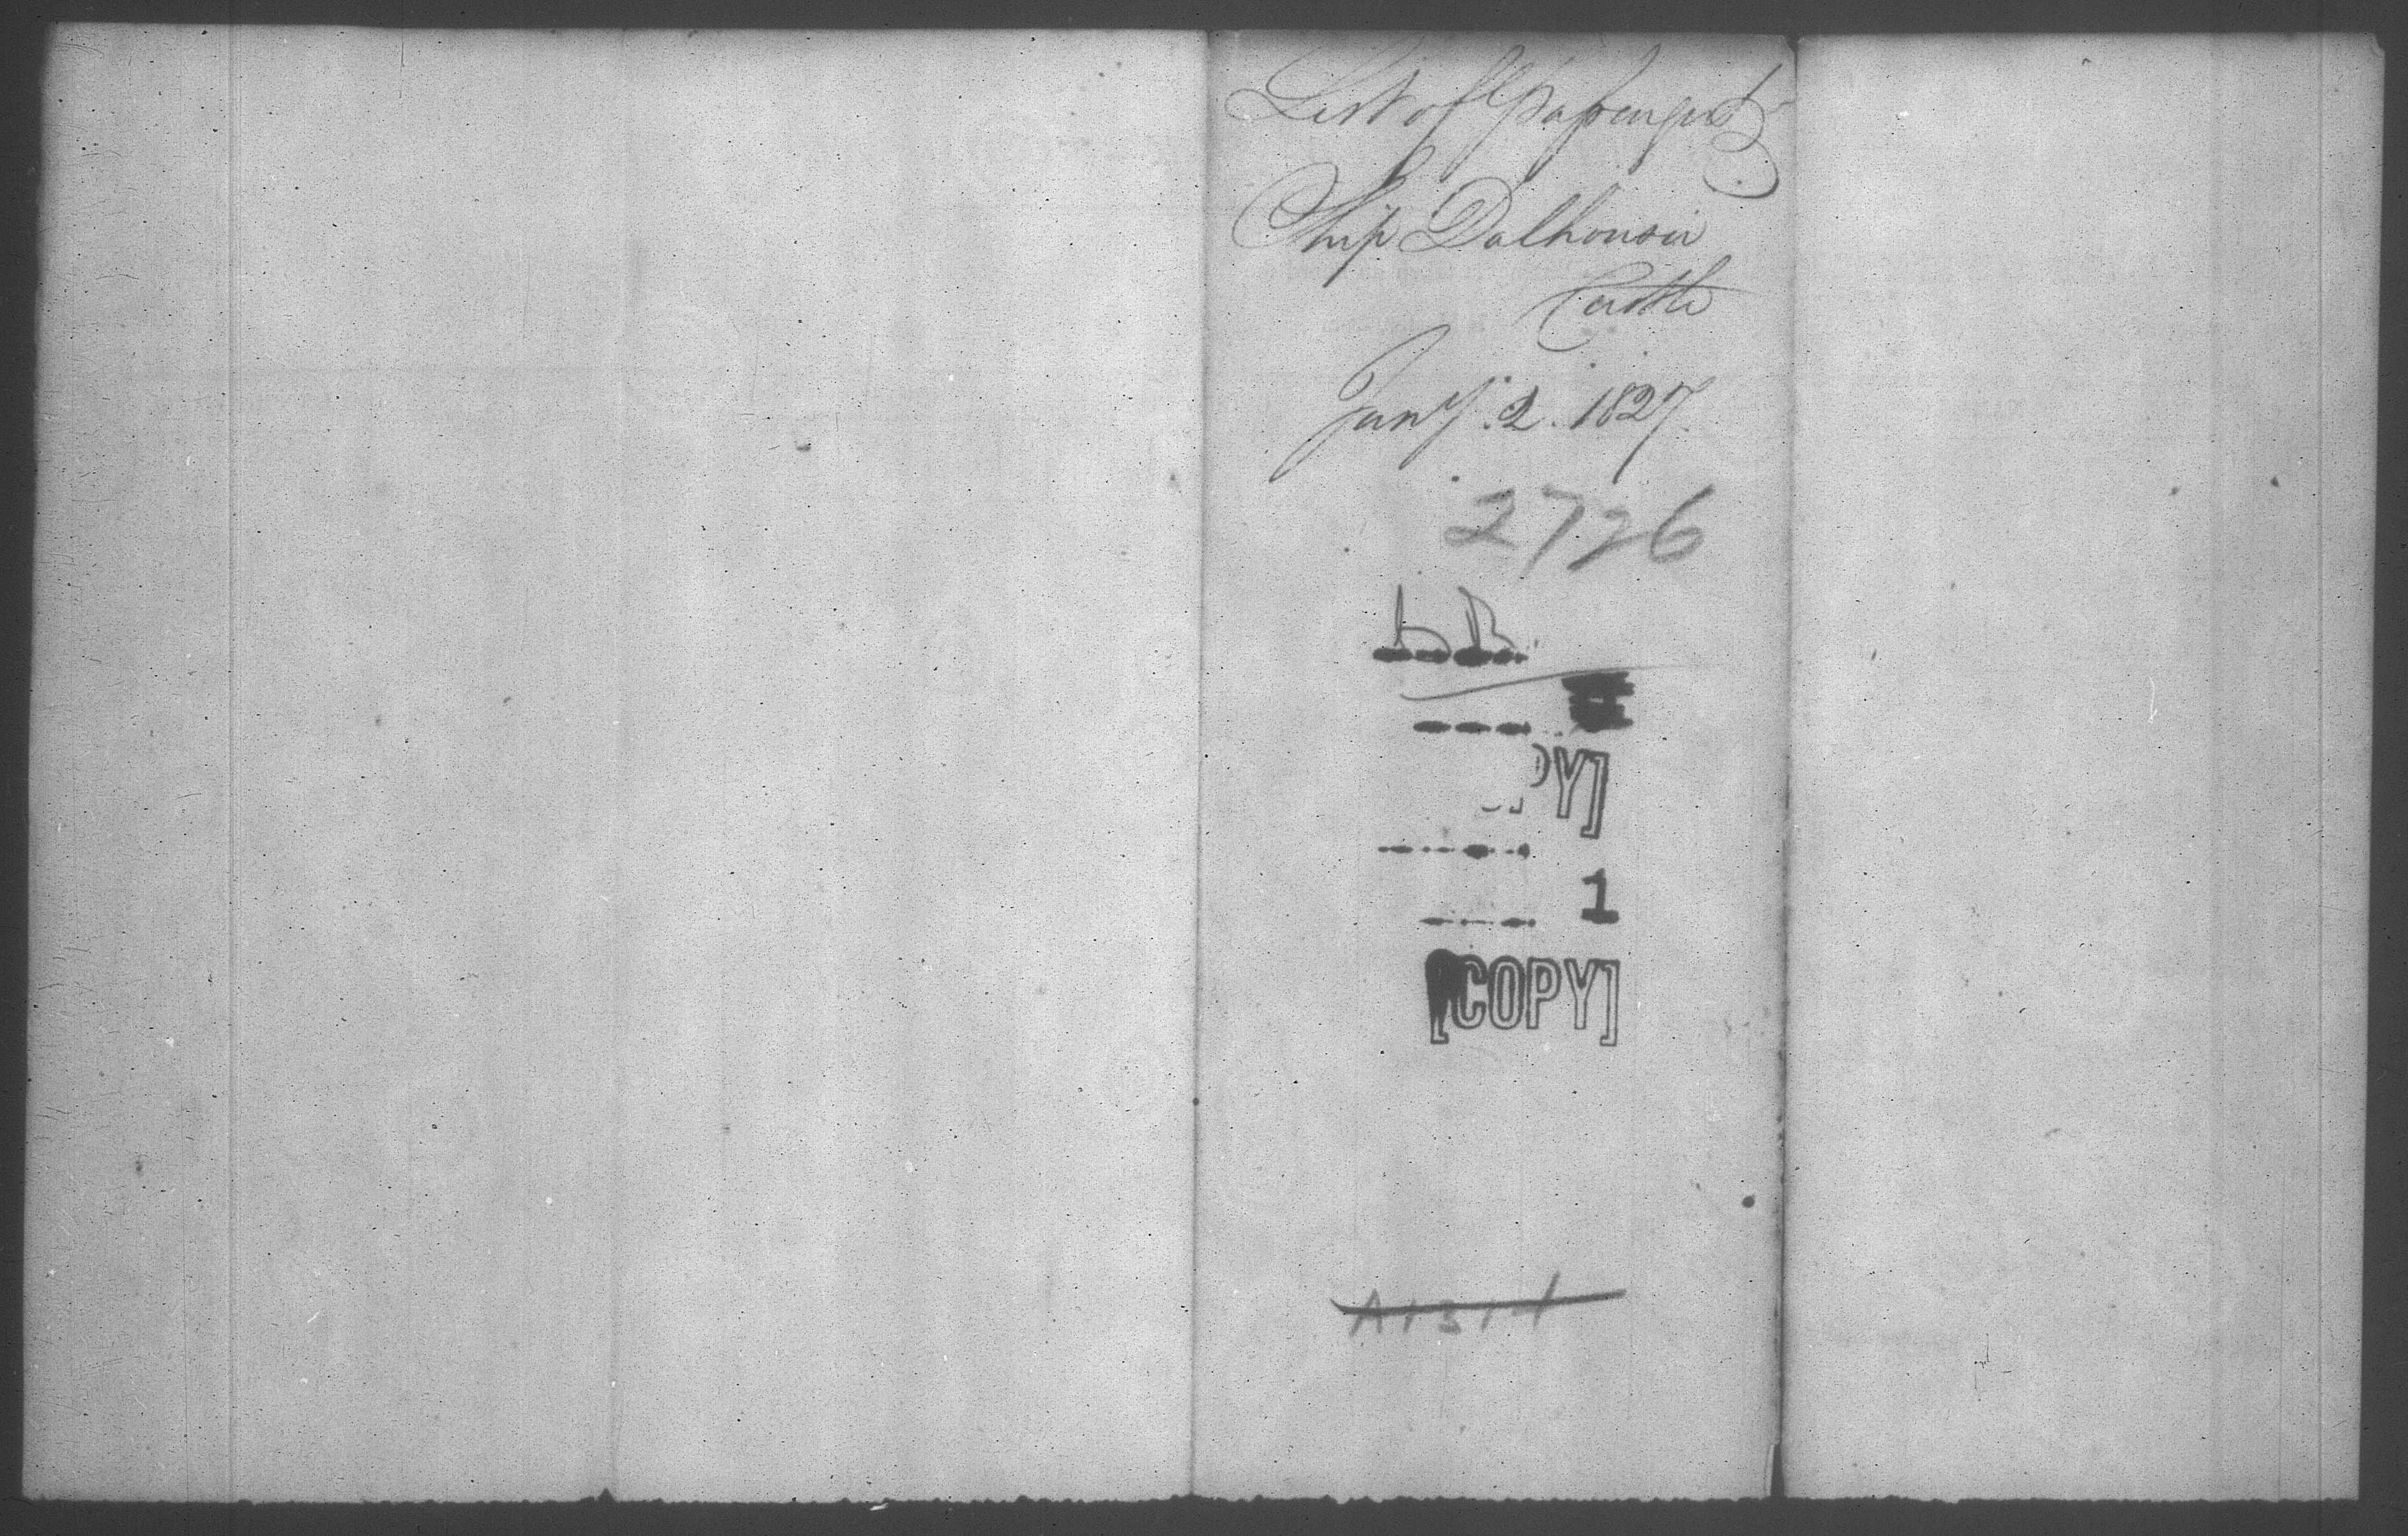 List of Passengers
Ship Dalhousie
Castle
Jany. 2. 1827.
2726
PY]
1
[COPY]
A1314